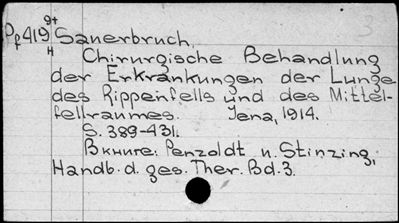 Pf419 9+ Sauerbruch,
н
Chirurgische Behandlung
der Erkrankungen der Lunge
des Rippenfells und des Mittel-
fellraumes. Jena, 1914.
S. 389-431.
В книге: Penzoldt u. Stinzing,
Handb. d. ges. Ther. Bd. 3.